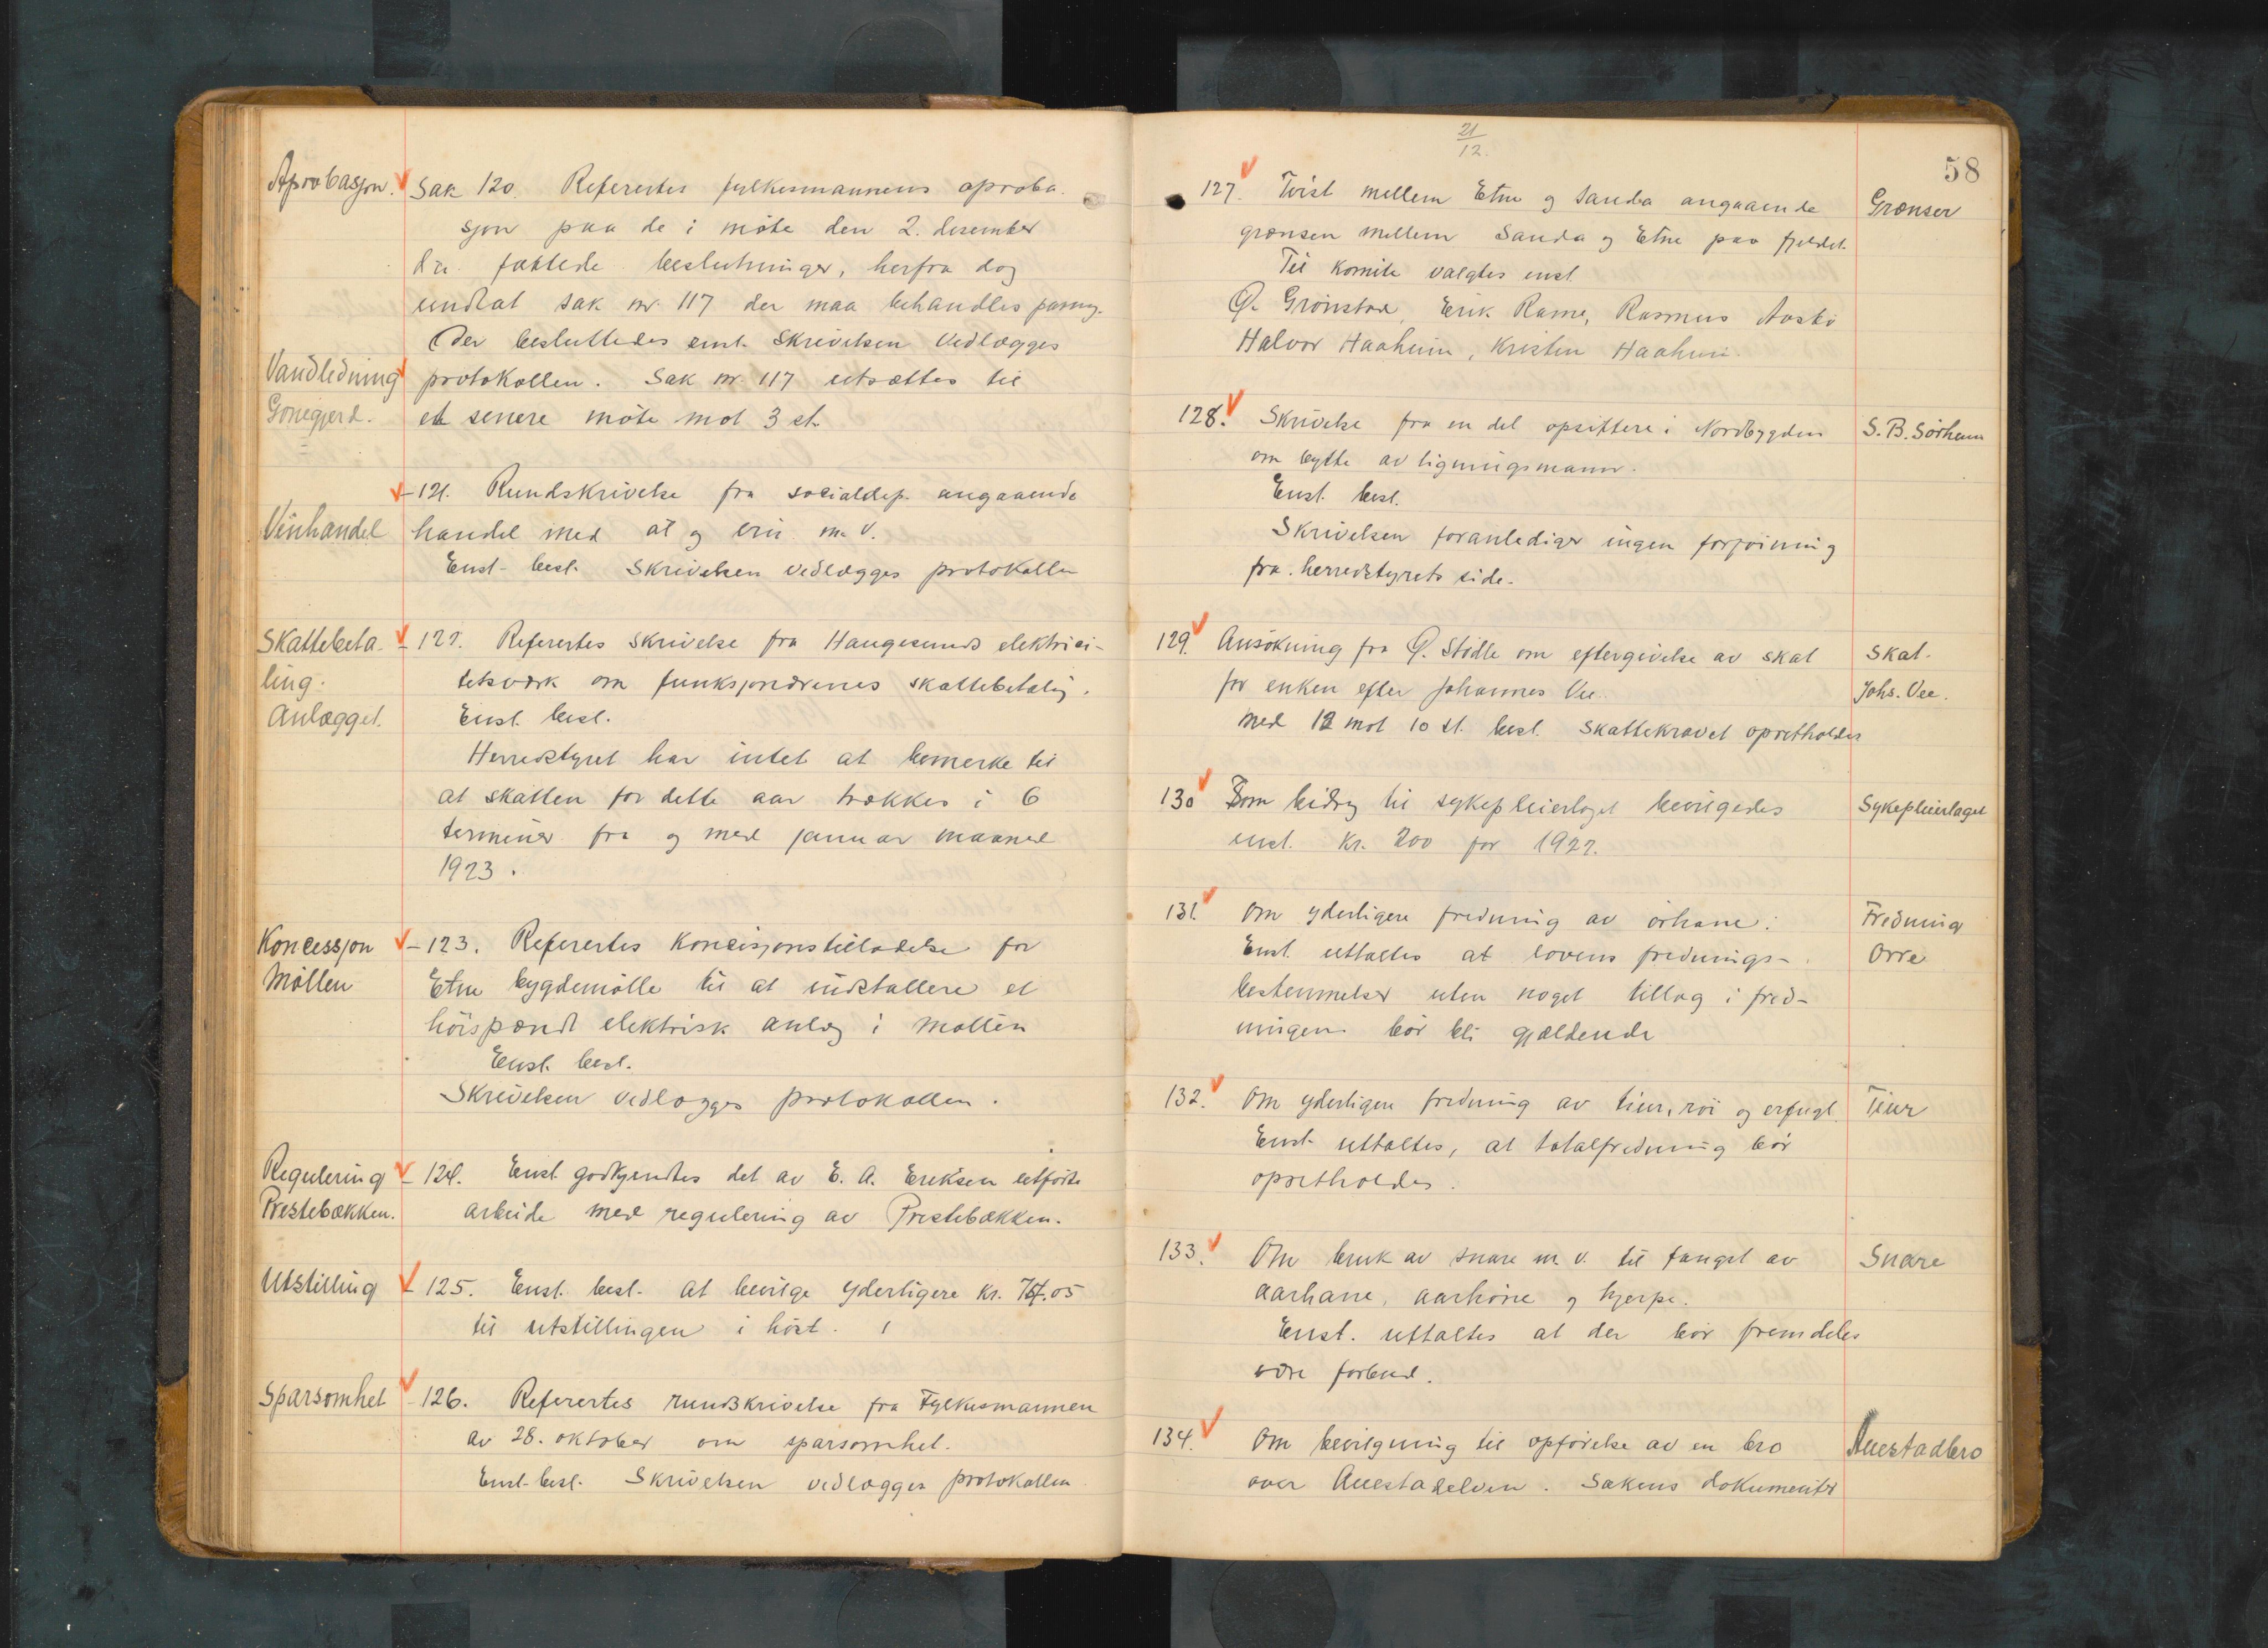 Aprobasjon.
Sak 120. Referertes fylkesmannens aproba-
sjon paa de i møte den 2. desember
d.a. fattede beslutninger, herfra dog
undtat sak nr. 117 der maa behandles paany.
Der besluttedes enst. Skrivelsen vedlægges
Vandledning
protokollen. Sak nr. 117 utsættes til
Gonegjerd.
et senere møte mot 3 st.
- 121. Rundskrivelse fra socialdep. angaaende
Vinhandel
handel med øl og vin m. v.
Enst. besl. Skrivelsen vedlægges protokollen
Skattebeta-
- 122. Referertes skrivelse fra Haugesunds elektrici-
ling.
tetsværk om funksjonærenes skattebetaling.
Anlægget.
Enst. besl.
Herredstyret har intet at bemerke til
at skatten for dette aar trækkes i 6
terminer fra og med januar maaned
1923.
Koncessjon
- 123. Referertes koncisjonstilladelse for
Møllen
Etne bygdemølle til at indstallere et
høispændt elektrisk anlæg i møllen
Enst. besl.
Skrivelsen vedlægges protokollen.
Regulering
- 124. Enst. godkjendtes det av E. A. Eriksen utførte
Prestebækken.
arbeide med regulering av Prestebækken.
Utstilling
- 125. Enst. besl. at bevilge yderligere kr. 05
til utstillingen i høst.
Sparsomhet
- 126. Referertes rundskrivelse fra Fylkesmannen
av 28. oktober om sparsomhet.
Enst. besl. Skrivelsen vedlægges protokollen
21/12.
58
127. Tvist mellem Etne og Sanda angaaende
Grænser
grænsen mellem Sanda og Etne paa fjeldet.
Til komite valgtes enst.
Ø. Grønstad, Erik Rame, Rasmus Aasbø
Halvor Haaheim, Kristen Haaheim.
128. Skrivelse fra en del opsittere i Nordbygden
S. B. Sørheim
om bytte av ligningsmann.
Enst. besl.
Skrivelsen foranlediger ingen forføining
fra herredstyrets side.
129. Ansøkning fra Ø. Stødle om eftergivelse av skat
Skat.
for enken efter Johannes Vee.
Johs. Vee.
Med 12 mot 10 st. besl. Skattekravet opretholdes
130 Som bidrag til sykepleierlaget bevilgedes
Sykepleierlaget
enst. kr. 200 for 1922.
131. Om yderligere fredning av orhane:
Fredning
Enst. uttaltes at lovens frednings-
Orre
bestemmelser uten noget tillæg i fred-
ningen bør bli gjældende
132. Om yderligere fredning av tiur, røi og erfugl.
Tiur
Enst. uttaltes, at totalfredning bør
opretholdes.
133. Om bruk av snare m. v. til fangst av
Snare
aarhane, aarhøne og hjerpe.
Enst. uttaltes at der bør fremdeles
være forbud.
134. Om bevilgning til opførelse av en bro
Auestadbro
over Auestadelven. Sakens dokumenter